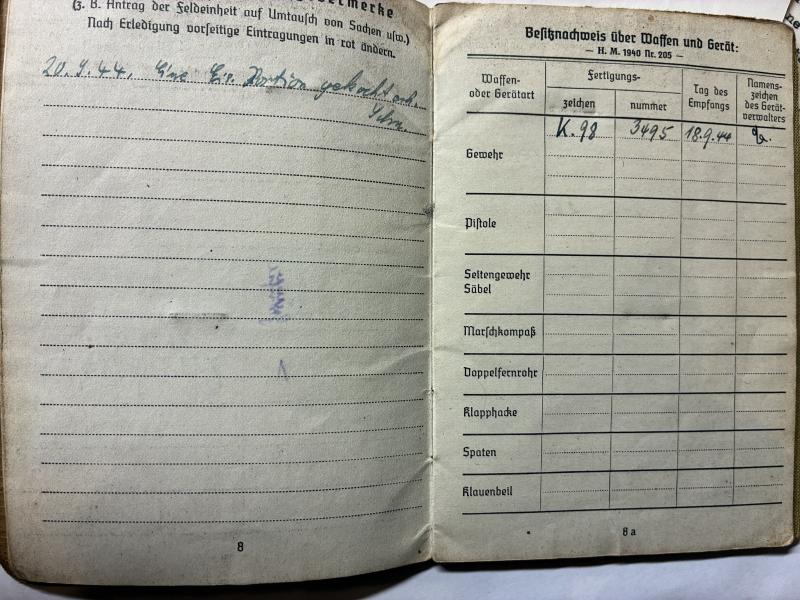 (z. B. Antrag der Feldeinheit auf Umtausch von Sachen usw.)
Nach Erledigung vorseitige Eintragungen in rot ändern.
20.9.44. Eine Eis. Portion
8
Besitznachweis über Waffen und Gerät:
— H. M. 1940 Nr. 205 —
Waffen- oder Gerätart
Fertigungs-
zeichen
nummer
Tag des Empfangs
Namens-zeichen des Gerät-verwalters
Gewehr K. 98 3495 18.9.44
Pistole
Seitengewehr
Säbel
Marschkompaß
Doppelfernrohr
Klapphacke
Spaten
Klauenbeil
8 a